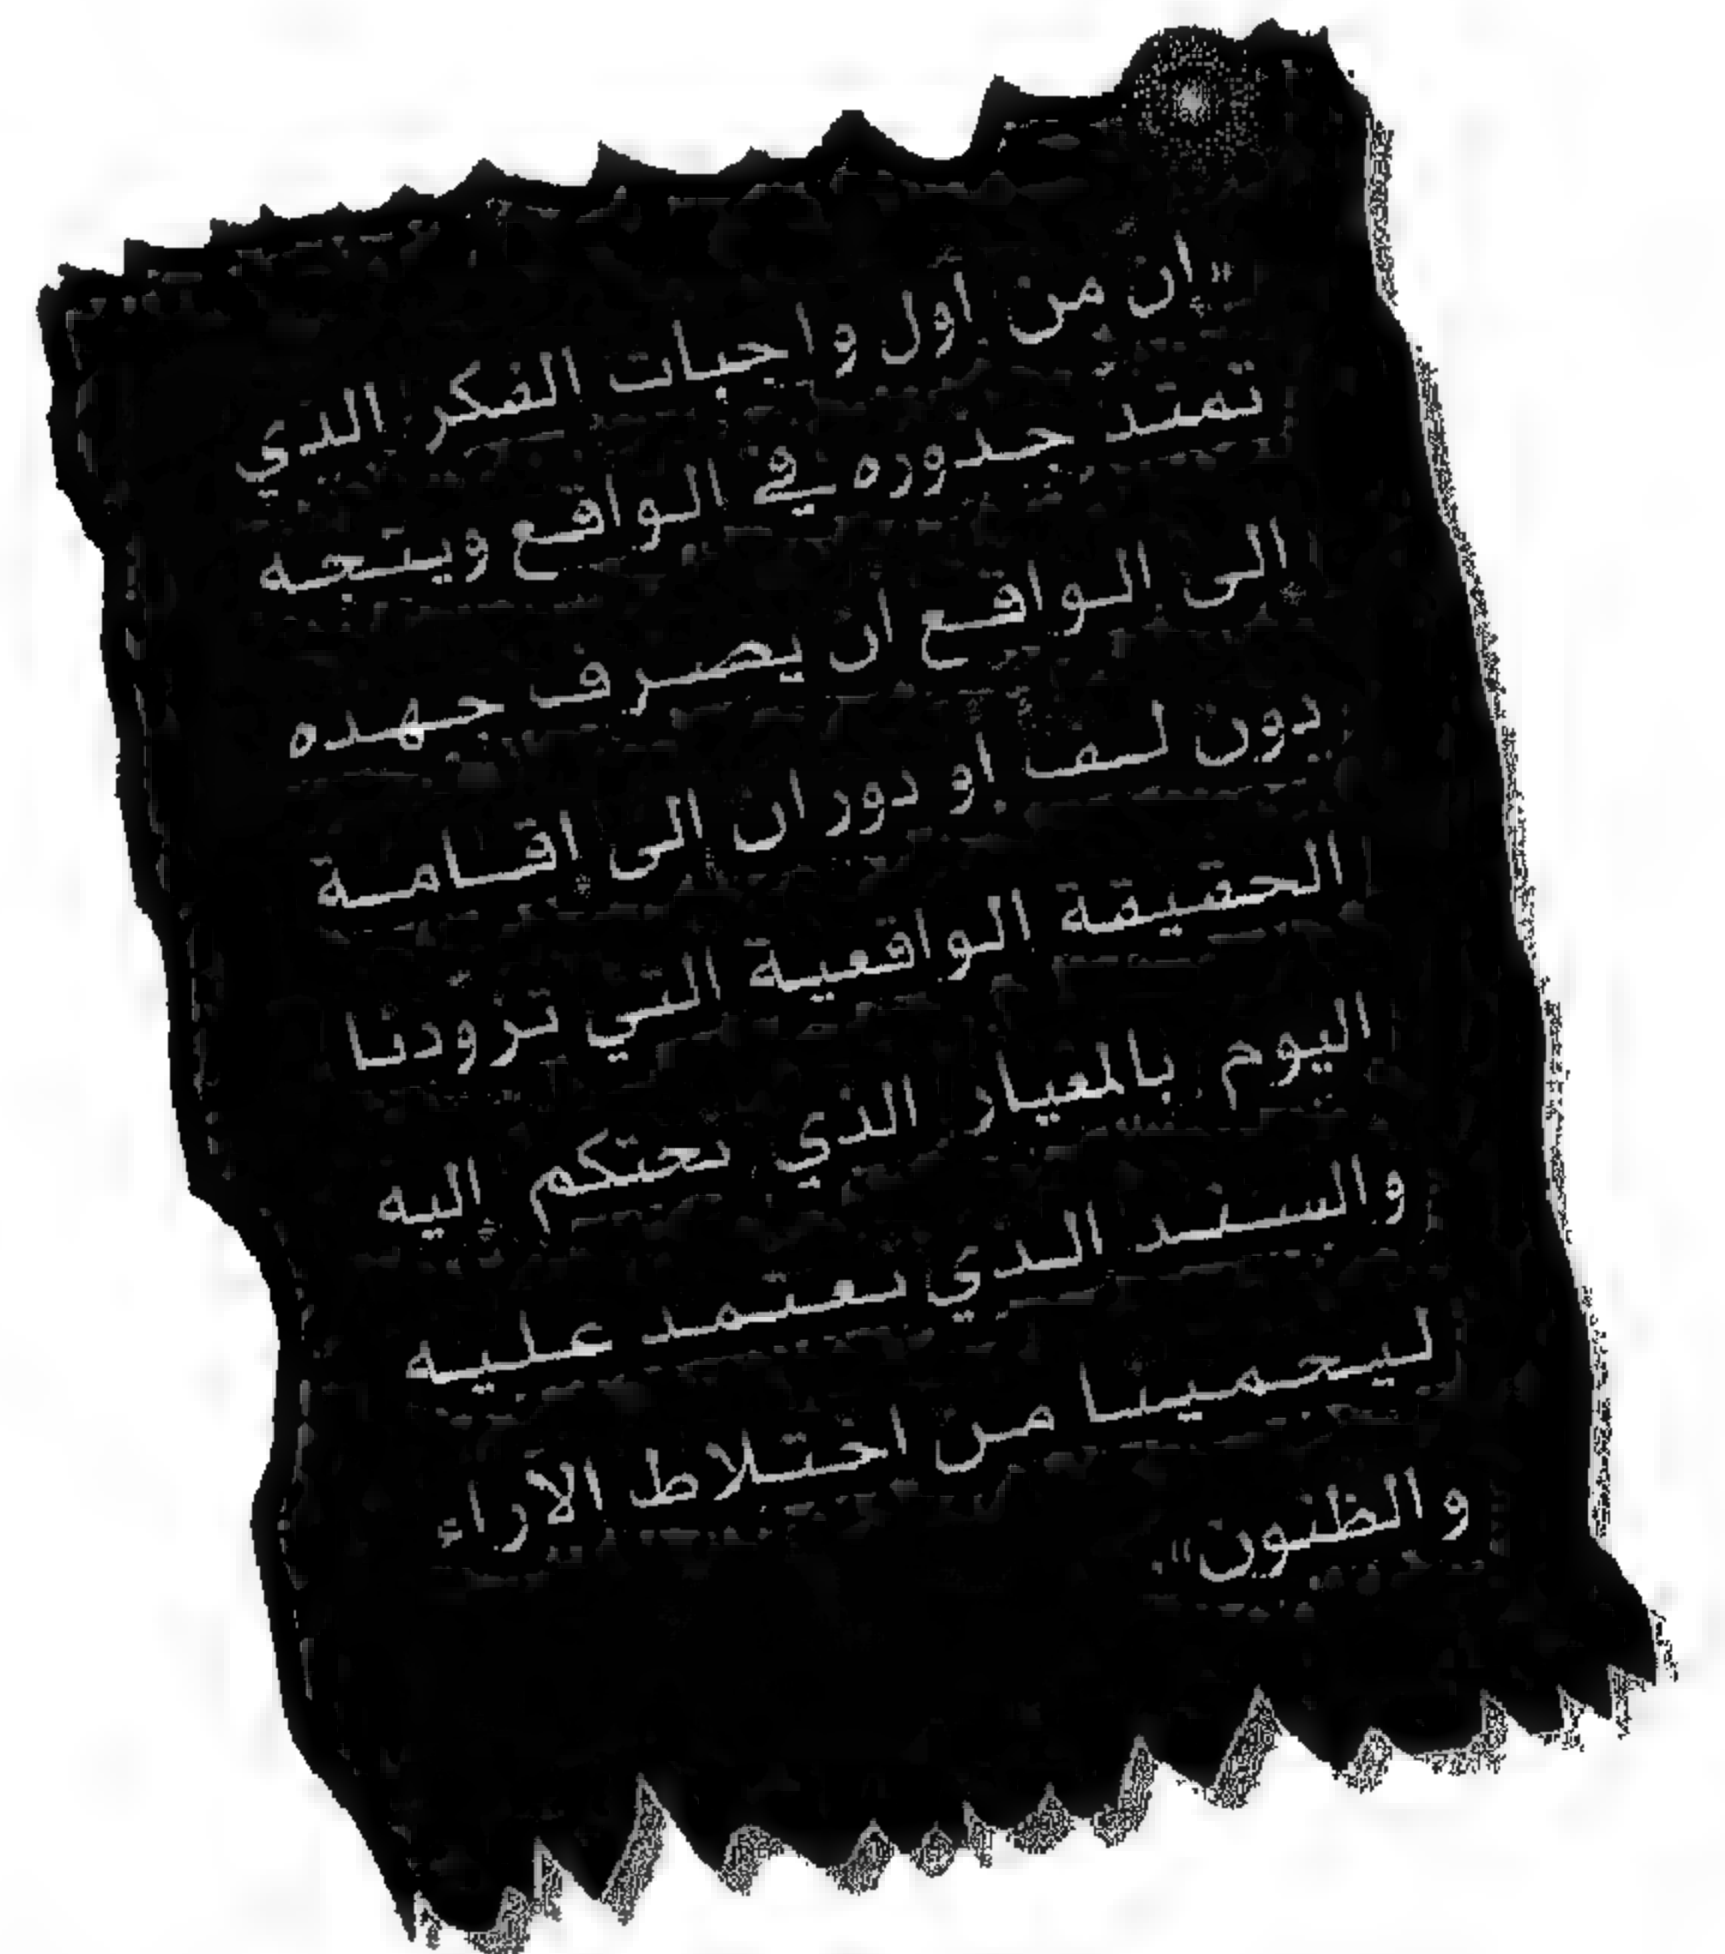 «إن من أول واجبات الفكر الذي
تمتدّ جذوره في الواقع ويتجه
إلى الواقع أن يصرف جهده
دون لفّ أو دوران إلى إقامة
الحقيقة الواقعية التي تزوّدنا
اليوم بالمعيار الذي نحتكم إليه
والسند الذي نعتمد عليه
ليحمينا من اختلاط الآراء
والظنون».